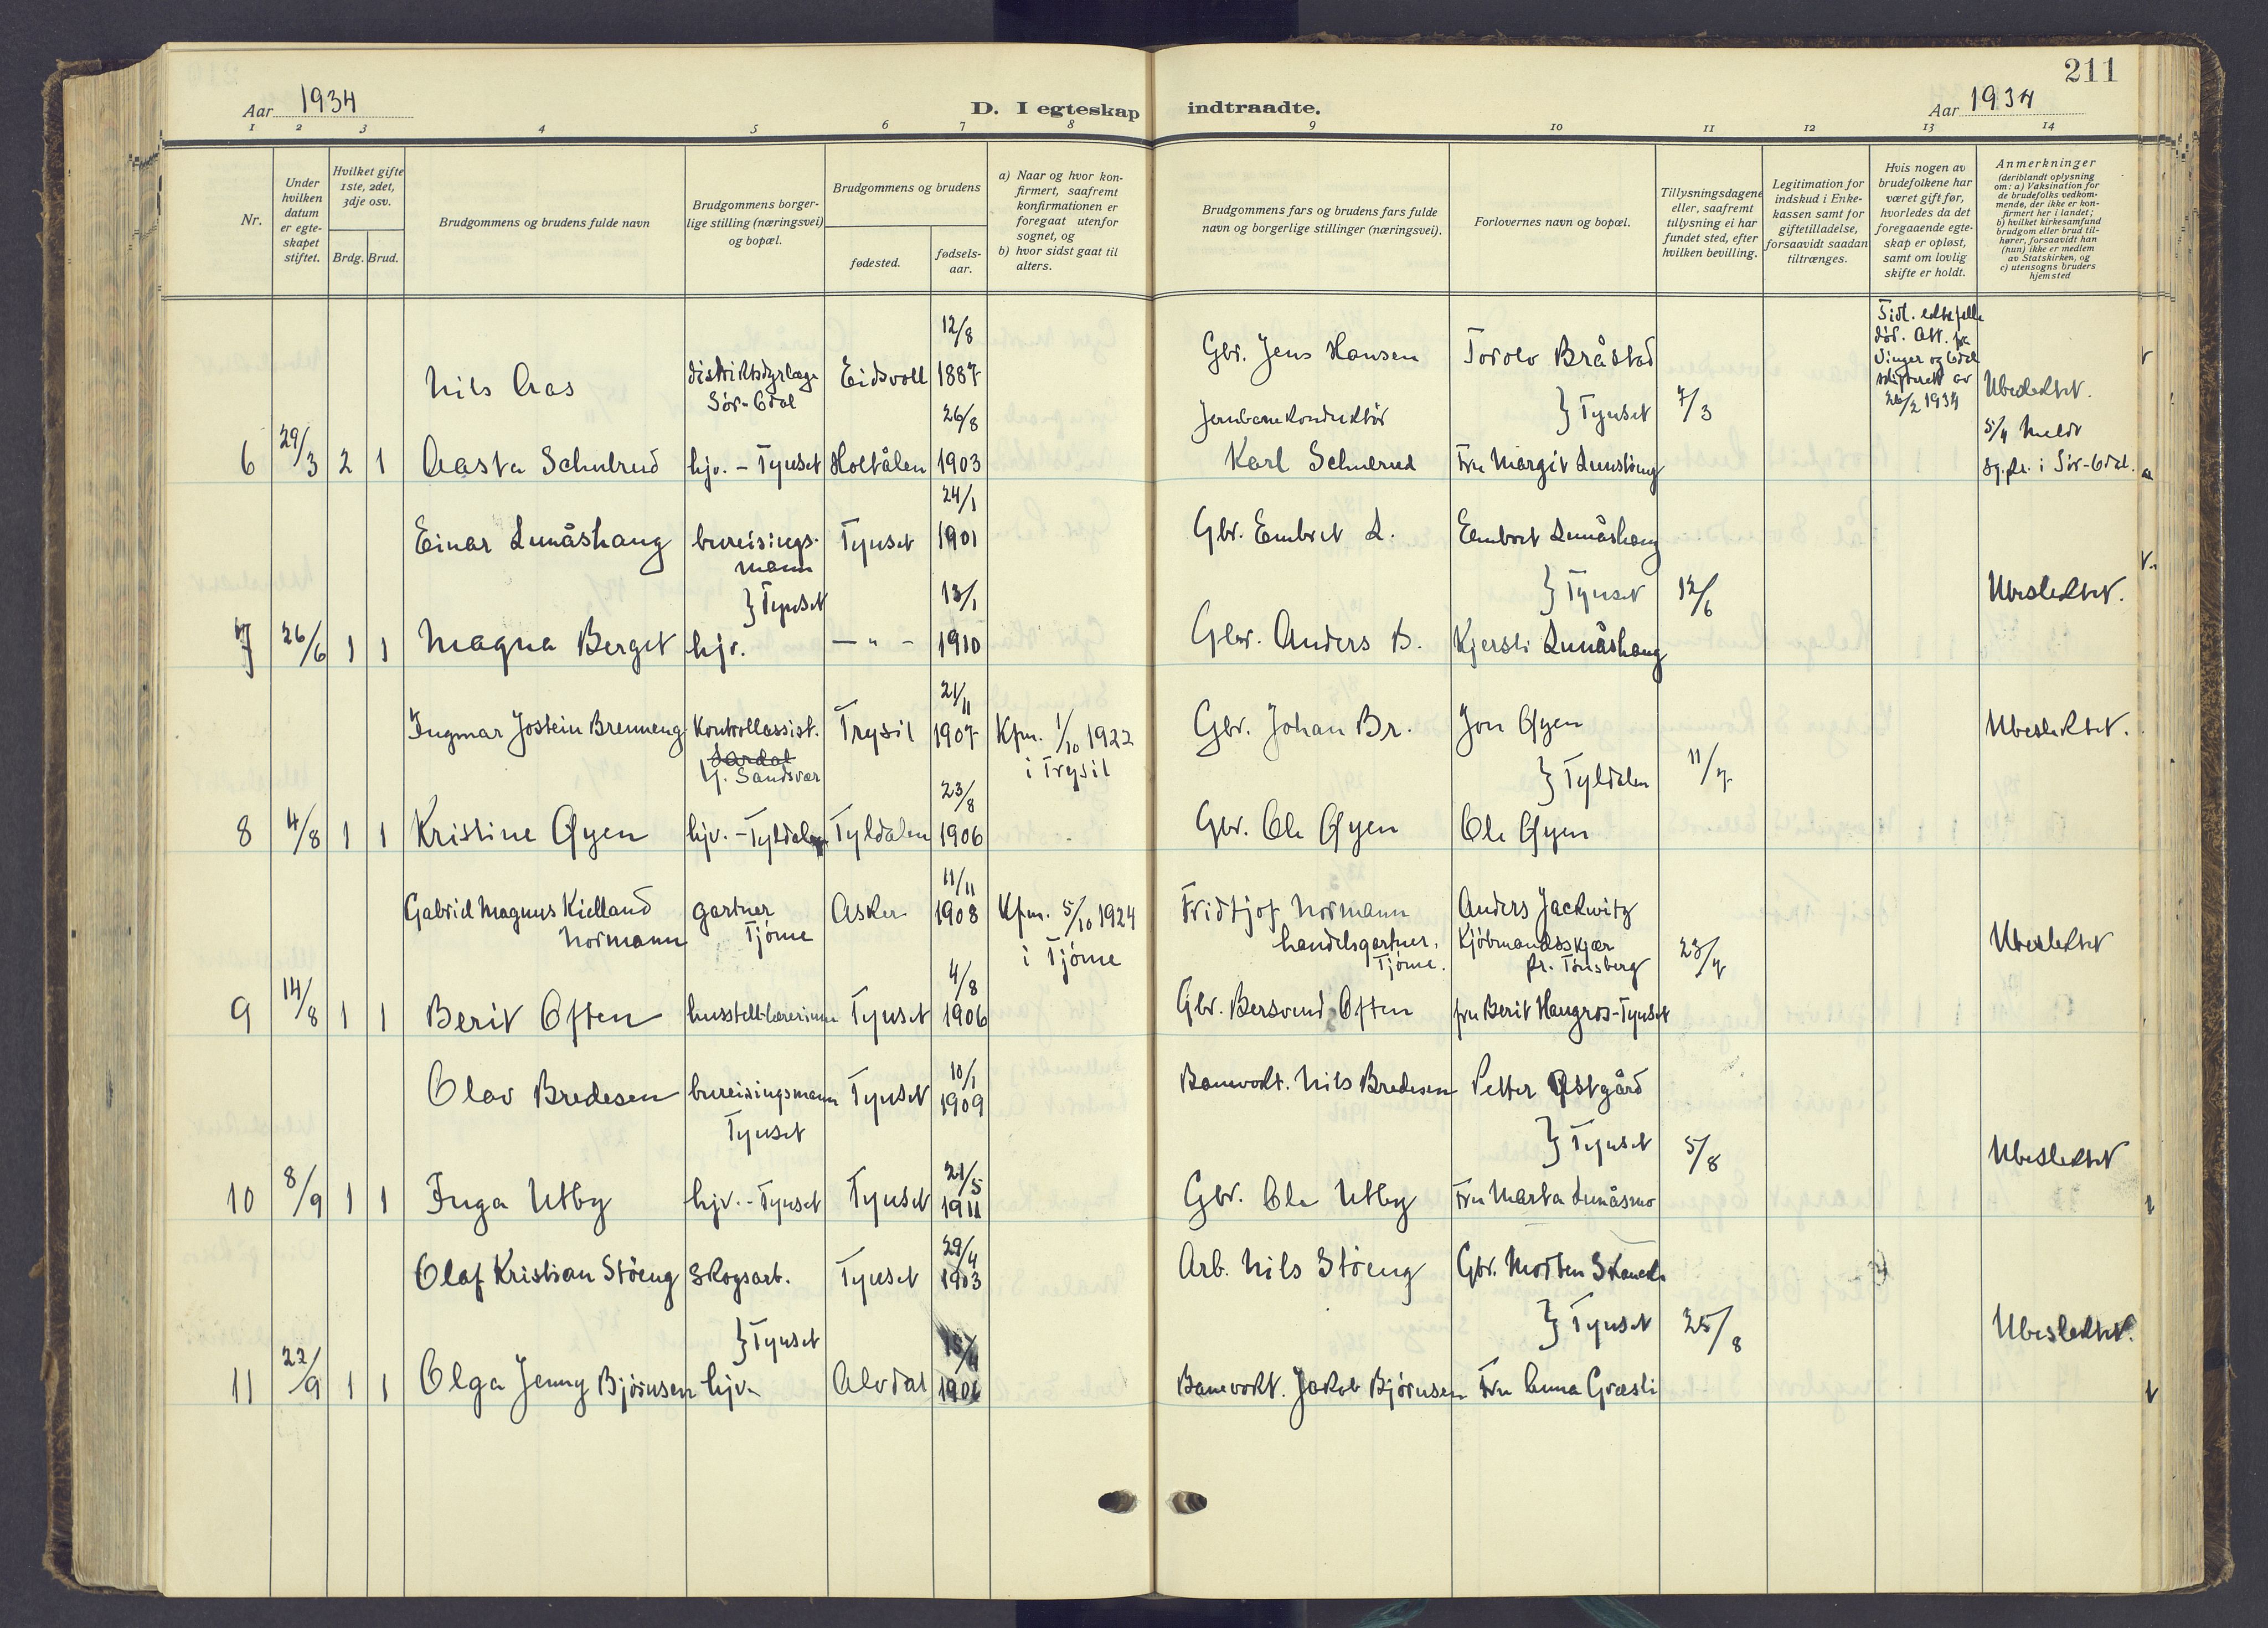 211
Aar 1934
D. I egteskap indtraadte.
Aar 1934
1 2 3 4 5 6 7 8 9 10 11 12 13 14
Nr.
Under hvilken datum er egteskapet stiftet.
Hvilket gifte 1ste, 2det, 3dje osv.
Brdg. Brud.
Brudgommens og brudens fulde navn
Brudgommens borgerlige stilling (næringsvei) og bopæl.
Brudgommens og brudens
fødested.
fødselsaar.
a) Naar og hvor konfirmert, saafremt konfirmationen er foregaat utenfor sognet, og
b) hvor sidst gaat til alters.
Brudgommens fars og brudens fars fulde navn og borgerlige stillinger (næringsvei).
Forlovernes navn og bopæl.
Tillysningsdagene eller, saafremt tullysning ei har fundet sted, efter hvilken bevilling.
Legitimation for indskud i Enkekassen samt for giftetilladelse, forsaavidt saadan tiltrænges.
Hvis nogen av brudefolkene har været gift før, hvorledes da det foregaaende egteskap er opløst, samt om lovlig skifte er holdt.
Anmerkninger
(deriblandt oplysning om: a) Vaksination for de brudefolks vedkommende, der ikke er konfirmert her i landet;
b) hvilket kirkesamfund brudgom eller brud tilhører, forsaavidt han (hun) ikke er medlem av Statskirken, og
c) utensogns bruders hjemsted
12/8
Nils Aas distriktsdyrlæge Sør-Odal Eidsvoll 1887 Gbr. Jens Hansen Torolv Bråstad
Tidl. ektefelle død. Att. fra Vinger og Odal skifterett av 26/2 1934
Ubeslektet.
26/8 Jernbanekonduktør } Tynset 7/3
6 29/3 2 1 Aasta Schulrud hjv. - Tynset Holtålen 1903 Karl Schulrud Fru Margit Lunsteng
5/4 meldt sg.pr. i Sør-Odal.
24/1
Einar Lunåshaug bureisingsmann Tynset 1901 Gbr. Embret L. Embret Lunåshaug
} Tynset 13/1 } Tynset 12/6 Ubeslektet.
7 26/6 1 1 Magna Berget hjv. — " — 1910 Gbr. Anders B. Kjersti Lunåshaug
21/11
Ingmar Jostein Brenneng Kontrollassist. Trysil 1907 Kfm. 1/10 1922 i Trysil Gbr. Johan Br. Jon Øyen Ubeslektet.
Sandsvær
23/8 } Tyldalen 11/7
8 4/8 1 1 Kristine Øyen hjv. - Tyldalen Tyldalen 1906 - Gbr. Ole Øyen Ole Øyen
11/11
Gabriel Magnus Kielland Normann gartner Tjøme Asker 1908 Kfm. 5/10 1924 i Tjøme Fridtjof Normann handelsgartner, Tjøme. Anders Jackwitz Kjøbmandsskjær pr. Tønsberg 23/7 Ubeslektet
4/8
9 14/8 1 1 Berit Often husstell-lærerinne Tynset 1906 Gbr. Bersvend Often fru Berit Haugros-Tynset
10/1
Olav Bredesen bureisingsmann Tynset Tynset 1909 Banevokt. Nils Bredesen Petter Østgård
21/5 } Tynset 5/8 Ubeslektet
10 8/9 1 1 Inga Utby hjv. - Tynset Tynset 1911 Gbr. Ole Utby Fru Marta Lunåsmo
29/4
Olaf Kristian Støeng Skogsarb. Tynset 1903 Arb. Nils Støeng Gbr. Morten
} Tynset } Tynset 25/8 Ubeslektet.
11 22/9 1 1 Olga Jenny Bjørnsen hjv. Alvdal 1906 Banevokt. Jakob Bjørnsen Fru Anna Græsli